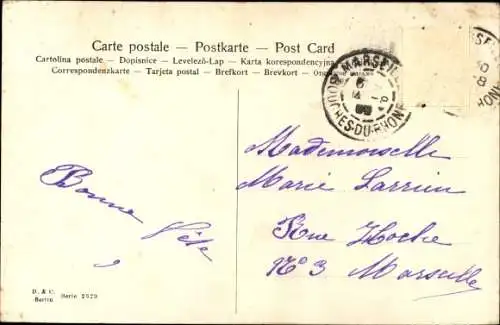 Carte postale – Postkarte – Post Card
Cartolina postale – Dopisnice – Levelező-Lap – Karta korespondencyjna
Correspondenzkarte – Tarjeta postal – Brefkort – Brevkort –
MARSEILLE
BOUCHES-DU-RHONE
Mademoiselle
Marie Larrieu
Rue Hoche
N° 3 Marseille
Bonne
fête
D. & C.
Berlin Serie 2929